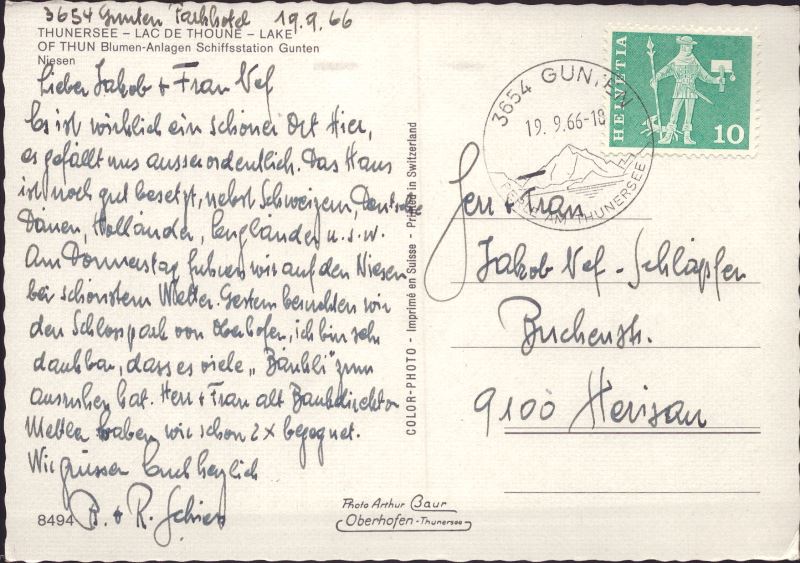 3654 Gunten Parkhotel 19.9.66
THUNERSEE – LAC DE THOUNE – LAKE
OF THUN Blumen-Anlagen Schiffsstation Gunten
Niesen
Lieber Jakob + Frau Nef
Es ist wirklich ein schöner Ort Hier,
es gefällt uns ausserordentlich. Das Haus
ist noch gut besetzt, nebst Schweizern, Deutsche
Dänen, Holländer, Engländer u.s.w.
Am Donnerstag fuhren wir auf den Niesen
bei schönstem Wetter. Gestern besuchten wir
den Schlosspark von Oberhofen, ich bin sehr
dankbar, dass es viele „Bänkli" zum
ausruhen hat. Herr + Frau alt Bankdirektor
Mettler haben wir schon 2x begegnet.
Wir grüssen Euch herzlich
B. + R.
8494
COLOR-PHOTO - Imprimé en Suisse - Printed in Switzerland
Photo Arthur Baur
Oberhofen-Thunersee
3654 GUNTEN
19. 9.66-18
AM THUNERSEE
HELVETIA
10
Herr + Frau
Jakob Nef-Schläpfer
Buchenstr.
9100 Herisau